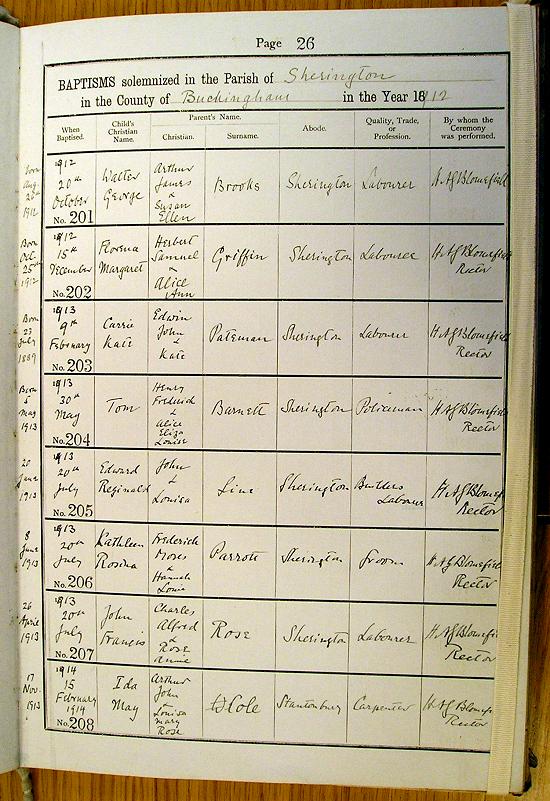 Page 26
BAPTISMS solemnized in the Parish of Sherington
in the County of Buckingham in the Year 1912
When Baptised. Child's Christian Name. Parent's Name. Christian. Surname. Abode. Quality, Trade, or Profession. By whom the Ceremony was performed.
Born Aug. 1912
1912 20th October No. 201
Walter George
Arthur James & Susan Ellen
Brooks
Sherington
Labourer
H A G Blomefield
Born Oct. 25th 1912
1912 15th December No. 202
Florena Margaret
Herbert Samuel & Alice Ann
Griffin
Sherington
Labourer
H. A G Blomefield Rector
Born 23 July 1889
1913 9th February No. 203
Carrie Kate
Edwin John & Kate
Pateman
Sherington
Labourer
H A G Blomefield Rector
Born 5 May 1913
1913 30th May No. 204
Tom
Henry Frederick & Alice Eliza Louise
Barnett
Sherington
Policeman
H A G Blomefield Rector
20 June 1913
1913 20th July No. 205
Edward Reginald
John & Louisa
Line
Sherington
Builders Labourer
H. A G Blomef Rector
8 June 1913
1913 20th July No. 206
Kathleen Rosina
Frederick Moses & Hannah
Parrott
Sherington
Groom
H. A G Blomefield Rector
26 April 1913
1913 20th July No. 207
John Francis
Charles Alfred & Rose Annie
Rose
Sherington
Labourer
H. A G Blomefield Rector
17 Nov. 1913
1914 15 February 1914 No. 208
Ida May
Arthur John & Louisa Mary Rose
Cole
Stantonbury
Carpenter
H A G Blomef Rector